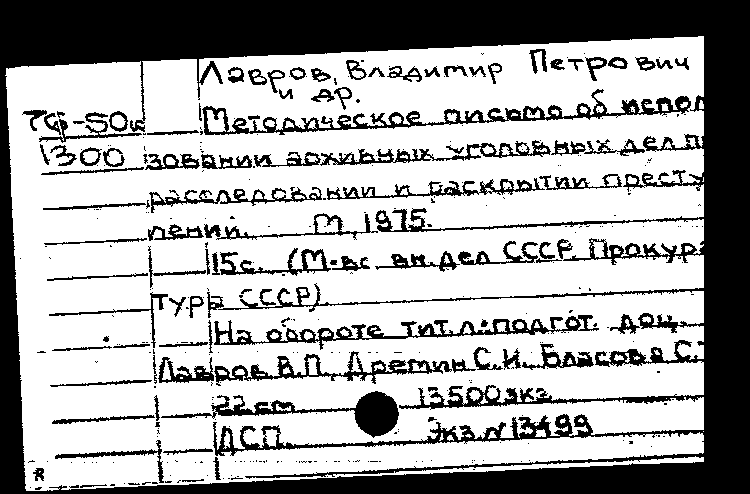 Лавров, Владимир Петрович
и др.
7Ф-50к Методическое письмо об испол
1300 зовании архивных уголовных дел п
расследовании и раскрытии престу
лений. М, 1975.
15с. (М-во вн. дел СССР. Прокура
тура СССР).
На обороте тит. л.: подгот. доц.
Лавров В.П., Дремин С.И., Власова С.
22 cm 13500 экз
ДСП. Экз. № 13499